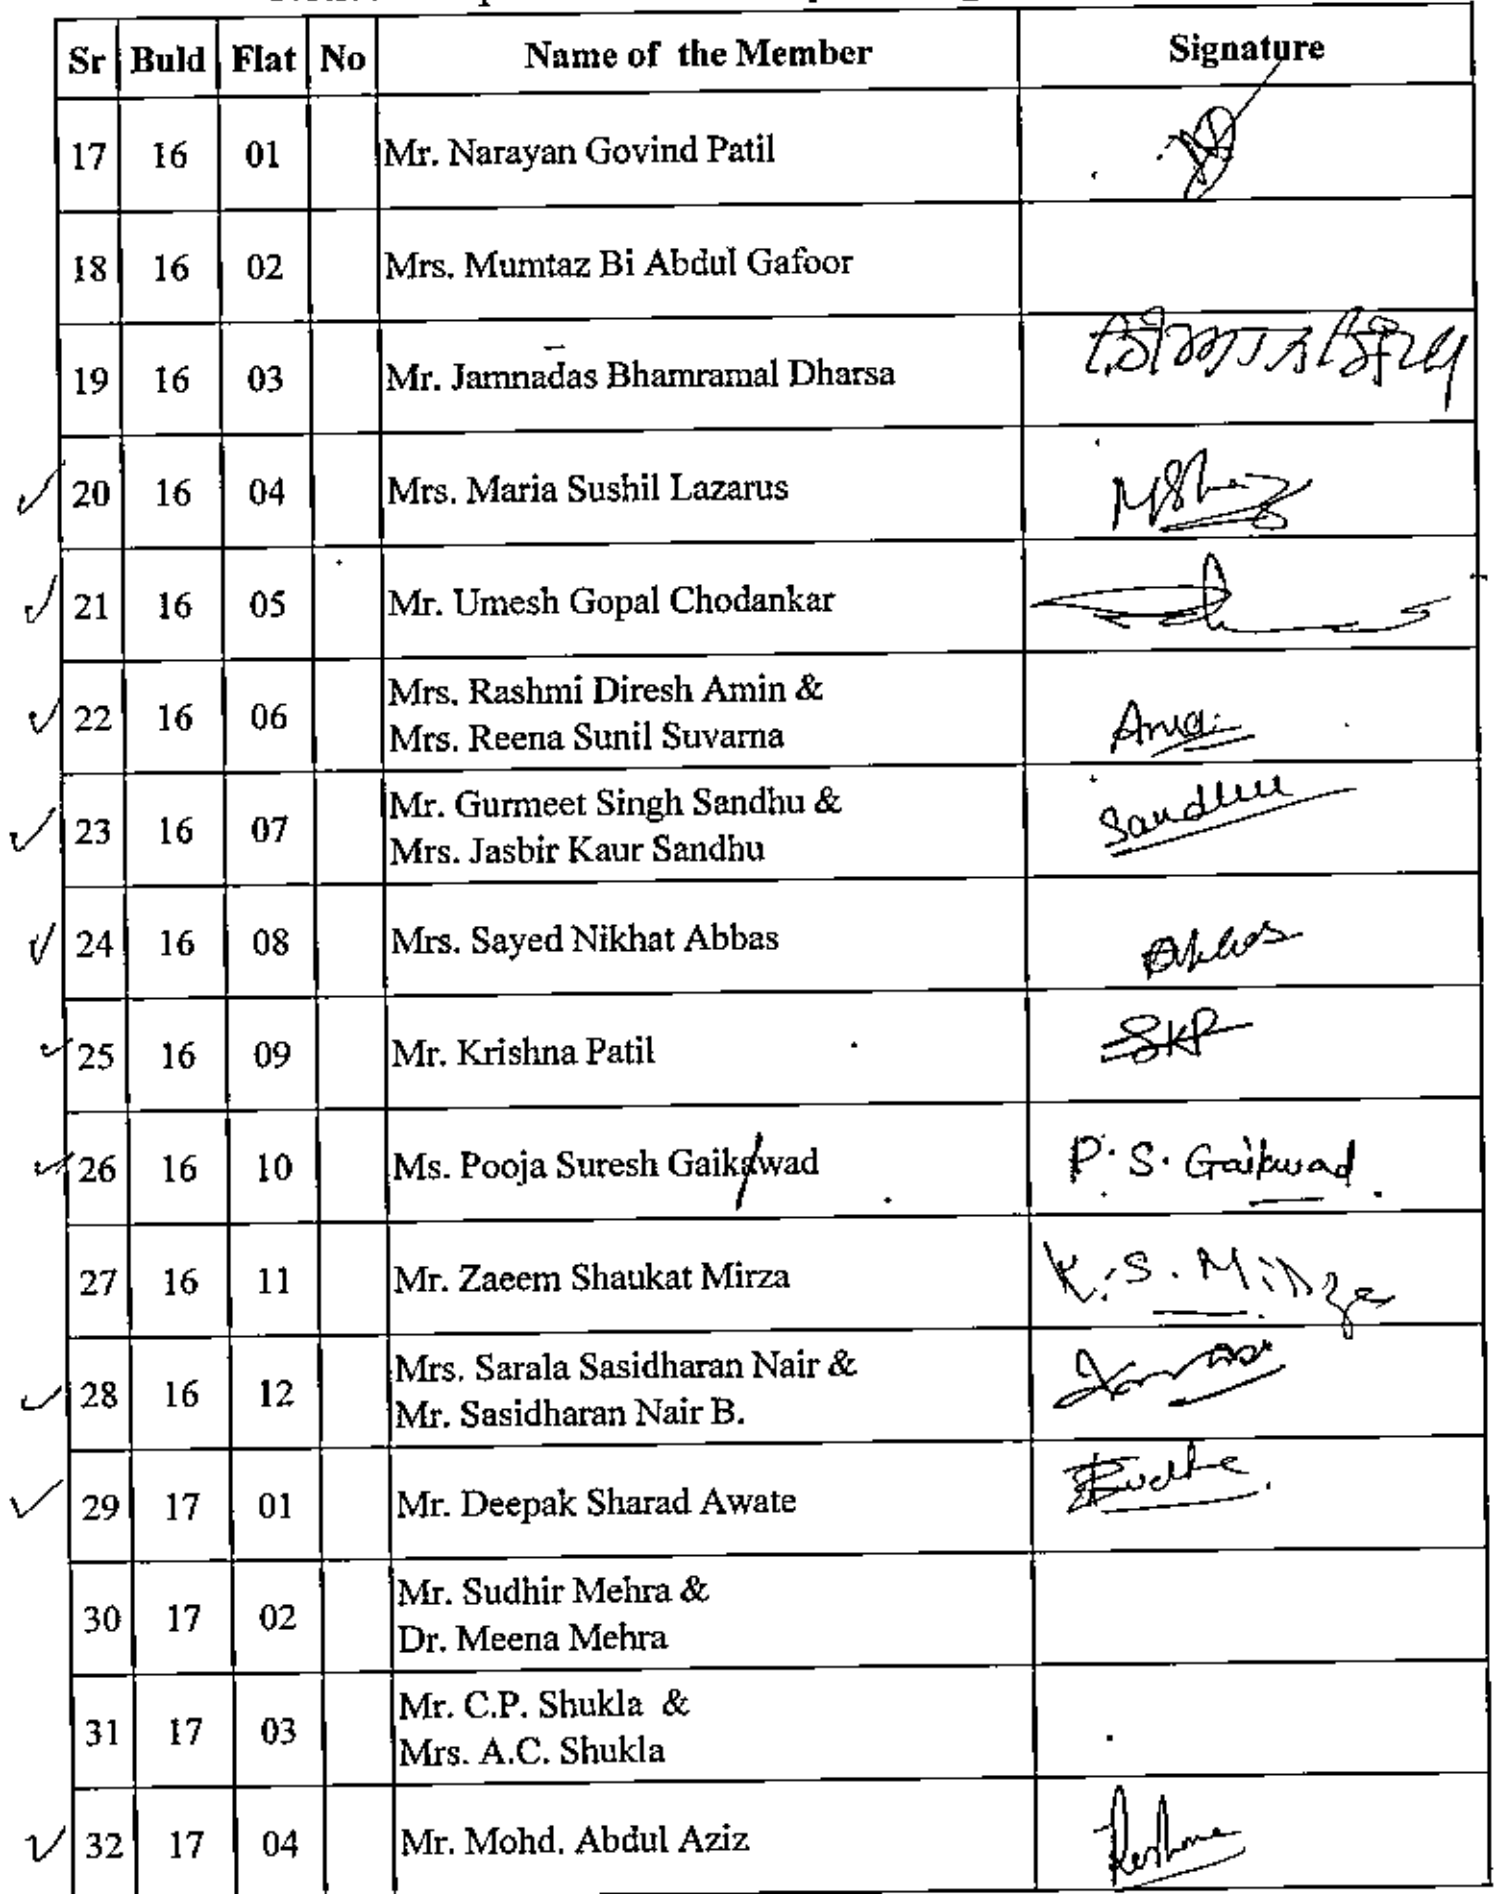 Sr Buld Flat No Name of the Member Signature
17 16 01 Mr. Narayan Govind Patil
18 16 02 Mrs. Mumtaz Bi Abdul Gafoor
19 16 03 Mr. Jamnadas Bhamramal Dharsa
20 16 04 Mrs. Maria Sushil Lazarus
21 16 05 Mr. Umesh Gopal Chodankar
22 16 06 Mrs. Rashmi Diresh Amin &
Mrs. Reena Sunil Suvarna
23 16 07 Mr. Gurmeet Singh Sandhu & Sandhu
Mrs. Jasbir Kaur Sandhu
24 16 08 Mrs. Sayed Nikhat Abbas
25 16 09 Mr. Krishna Patil SKP
26 16 10 Ms. Pooja Suresh Gaikawad P. S. Gaikwad
27 16 11 Mr. Zaeem Shaukat Mirza K. S. Mirza
28 16 12 Mrs. Sarala Sasidharan Nair &
Mr. Sasidharan Nair B.
29 17 01 Mr. Deepak Sharad Awate
30 17 02 Mr. Sudhir Mehra &
Dr. Meena Mehra
31 17 03 Mr. C.P. Shukla &
Mrs. A.C. Shukla
32 17 04 Mr. Mohd. Abdul Aziz